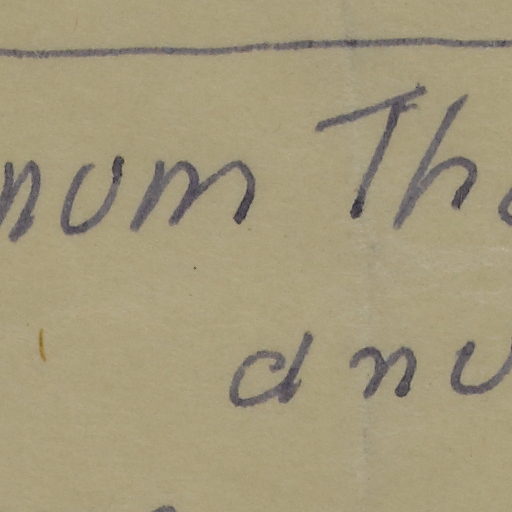 num Th
d nu